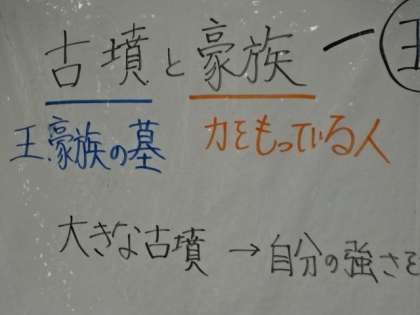 古墳と豪族ー
王、豪族の墓 力をもっている人
大きな古墳 → 自分の強さを